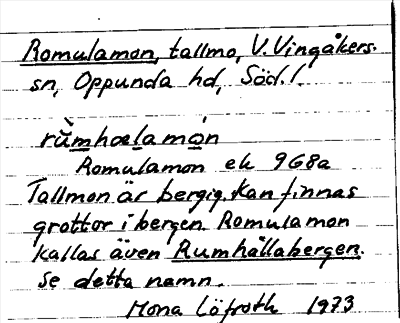 Romulamon, tallmo, V. Vingåkers
sn, Oppunda hd, Söd.l.
rùmhœlamón
Romulamon ek 9G8a
Tallmon är bergig. Kan finnas
grottor i bergen. Romulamon
kallas även Rumhållabergen.
Se detta namn.
Mona Löfroth 1973